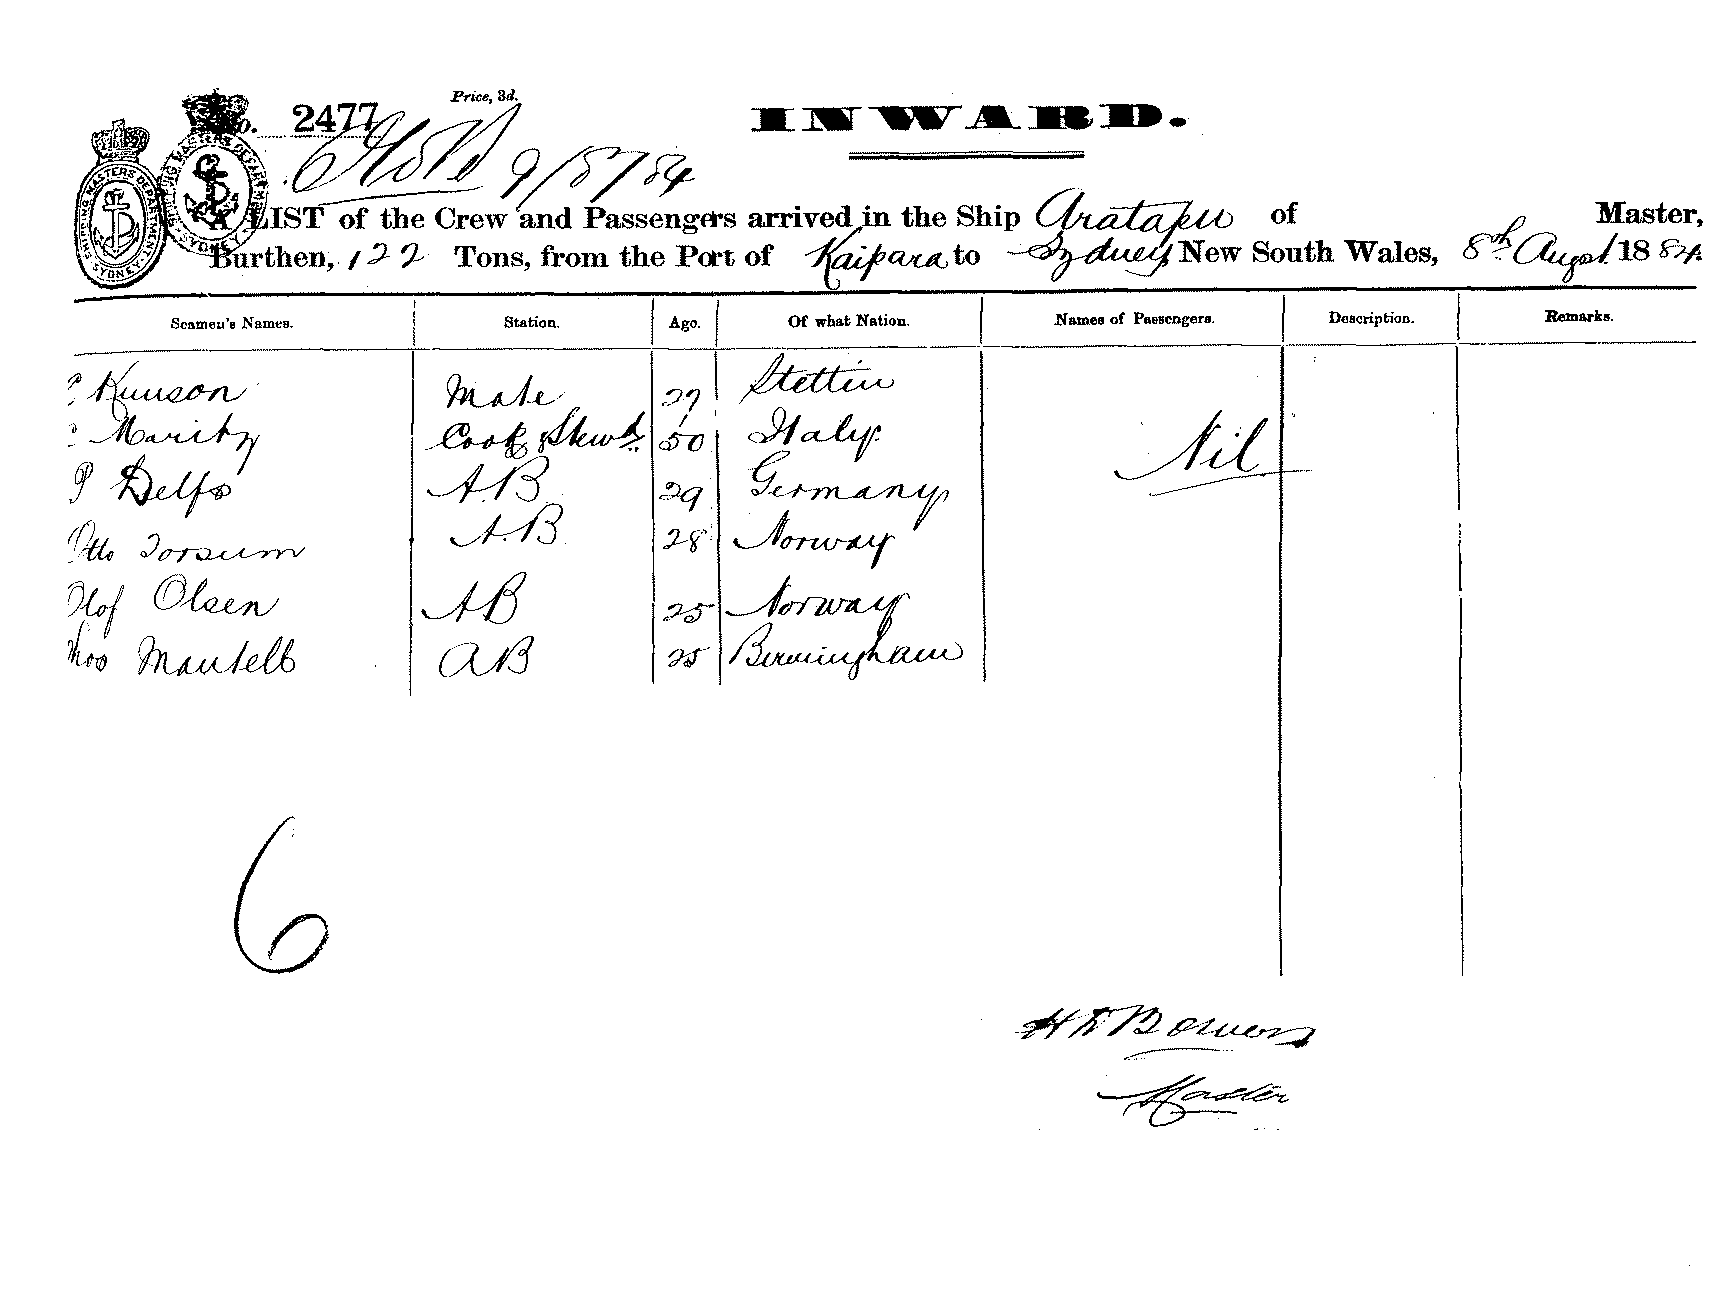 Price, 3d.
No. 2477
INWARD.
9/8/84
SHIPPING MASTERS DEPARTMENT SYDNEY
SHIPPING MASTERS DEPARTMENT SYDNEY
A LIST of the Crew and Passengers arrived in the Ship Aratapu of Master,
Burthen, 122 Tons, from the Port of Kaipara to Sydney New South Wales, 8th Augst 1884
Seamen's Names. Station. Age. Of what Nation. Names of Passengers. Description. Remarks.
Knuson Mate 27 Stettin
Maritz Cook & Stewd. 50 Italy.
P Delfs A.B 29 Germany
Nil
Otto Torsum A.B 28 Norway
Olof Olsen AB 25 Norway
Thos Mantell AB 25 Birmingham
6
Bowers
Master